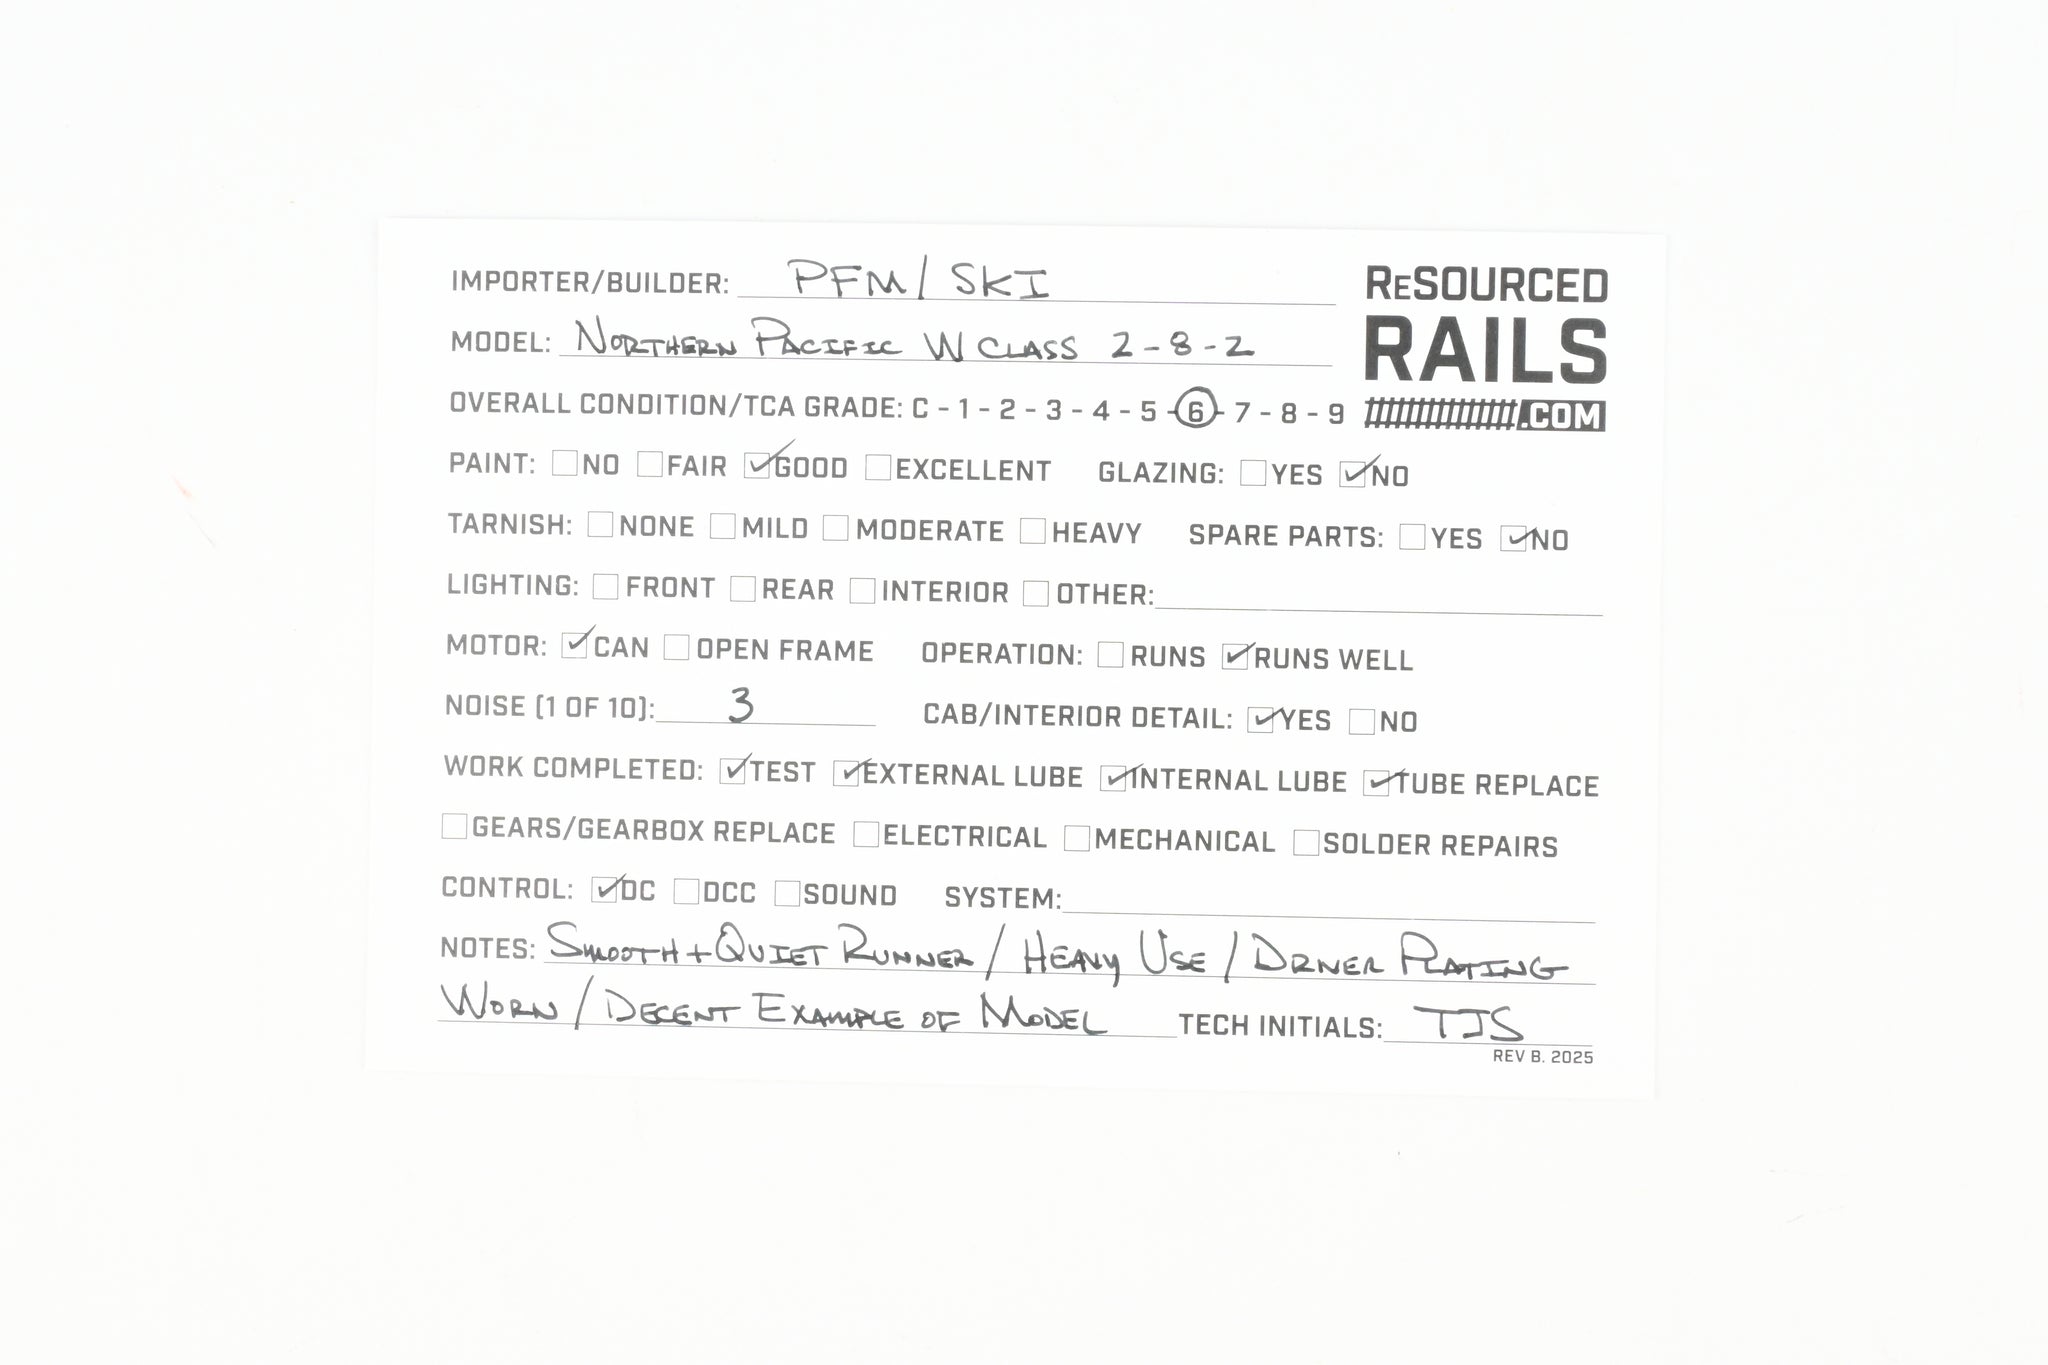 IMPORTER/BUILDER: PFM/SKI
ReSOURCED
RAILS
.COM
MODEL: NORTHERN PACIFIC W CLASS 2-8-2
OVERALL CONDITION/TCA GRADE: C - 1 - 2 - 3 - 4 - 5 - 6 - 7 - 8 - 9
PAINT: ☐NO ☐FAIR ☑GOOD ☐EXCELLENT GLAZING: ☐YES ☑NO
TARNISH: ☐NONE ☐MILD ☐MODERATE ☐HEAVY SPARE PARTS: ☐YES ☑NO
LIGHTING: ☐FRONT ☐REAR ☐INTERIOR ☐OTHER:
MOTOR: ☑CAN ☐OPEN FRAME OPERATION: ☐RUNS ☑RUNS WELL
NOISE (1 OF 10): 3 CAB/INTERIOR DETAIL: ☑YES ☐NO
WORK COMPLETED: ☑TEST ☑EXTERNAL LUBE ☑INTERNAL LUBE ☑TUBE REPLACE
☐GEARS/GEARBOX REPLACE ☐ELECTRICAL ☐MECHANICAL ☐SOLDER REPAIRS
CONTROL: ☑DC ☐DCC ☐SOUND SYSTEM:
NOTES: SMOOTH + QUIET RUNNER / HEAVY USE / DRIVER PLATING
WORN / DECENT EXAMPLE OF MODEL TECH INITIALS: TJS
REV B. 2025